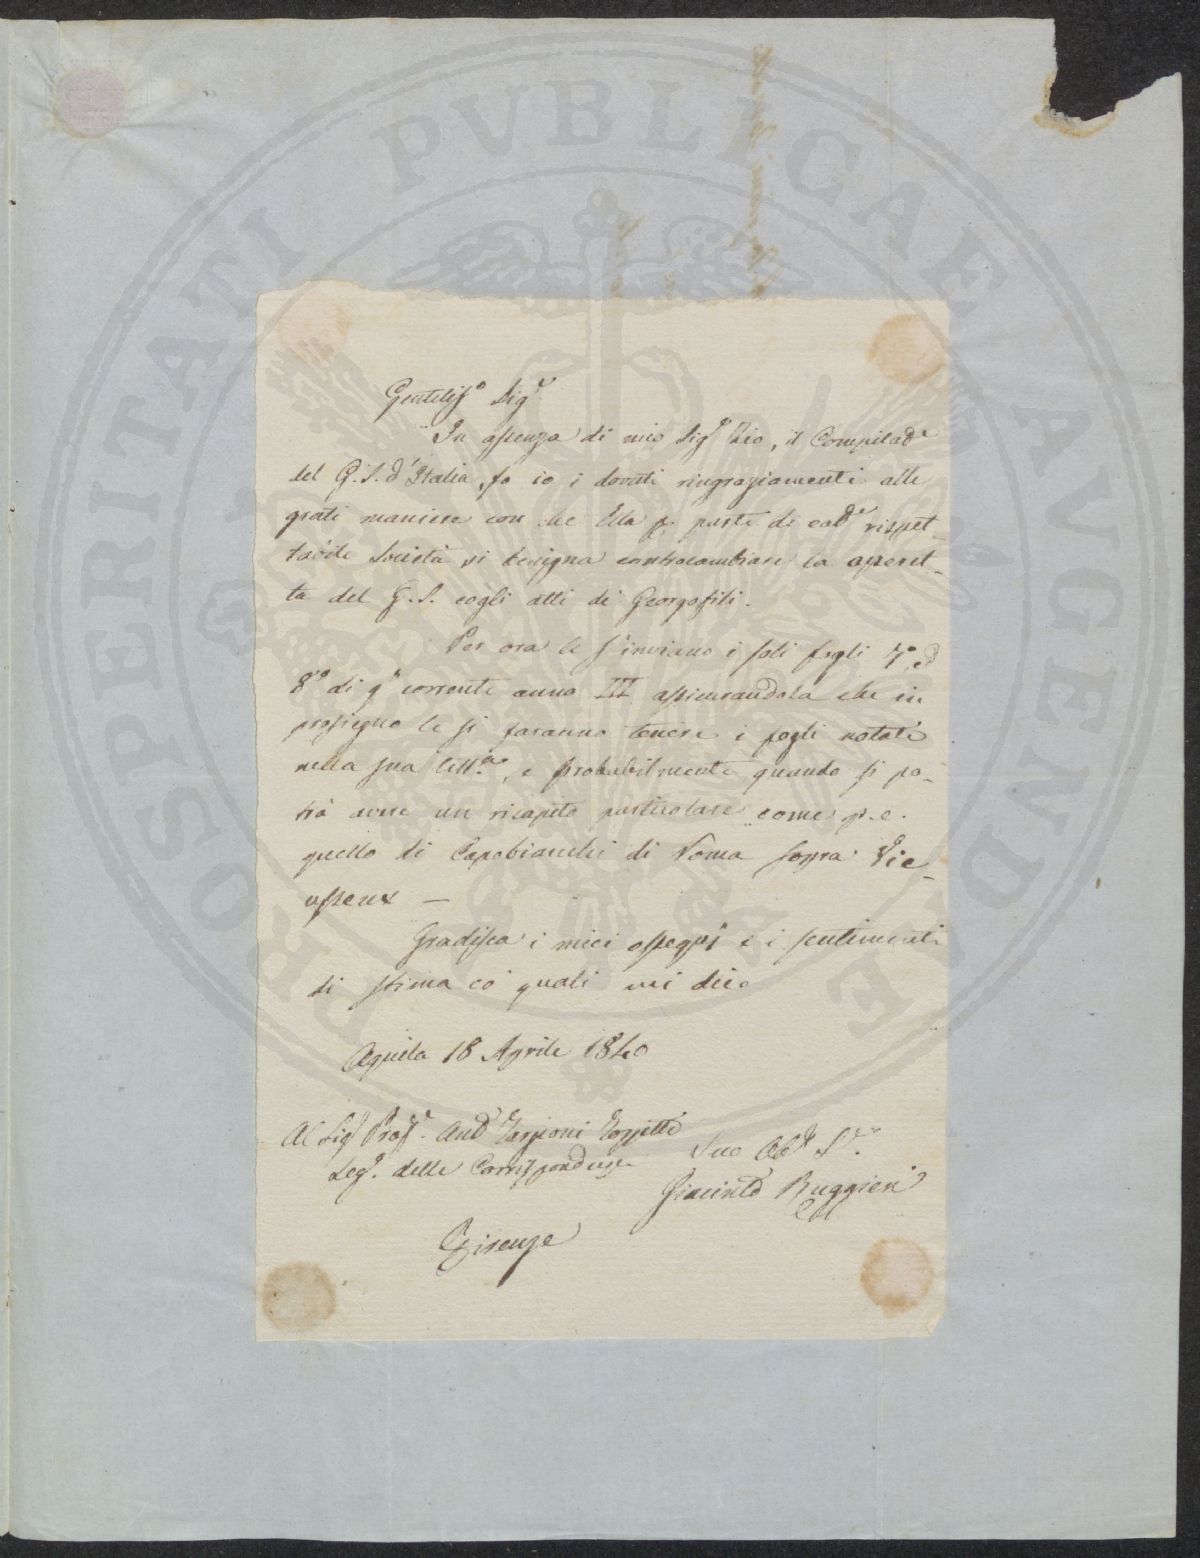 PROSPERITATI PVBLICAE AVGENDAE
Gentiliss.o Sig.e
In assenza di mio Sig.r Zio, il Compilad.e
del G. S. d'Italia, fo io i dovuti ringraziamenti alle
grate maniere con che Ella p. parte di cod.e rispet-
tabile Società si benigna contracambiare la
ta del G. S. cogli atti de' Georgofili.
Per ora le s'inviano i soli fogli 7.o ed
8.o di q.o corrente anno III assicurandola che in
prosieguo le si faranno tenere i fogli notati
nella sua lett.a, e probabilmente quando si po-
trà avere un ricapito particolare come p. e.
quello di Capobianchi di Roma sopra Vie-
usseux —
Gradisca i miei ossequj e i sentimenti
di stima co' quali mi dico
Aquila 18 Aprile 1840
Al Sig.r Prof.r Ant.o Targioni Tozzetti
Seg.o delle Corrispondenze
Suo Obb.o S.re
Giacinto Ruggieri
Firenze